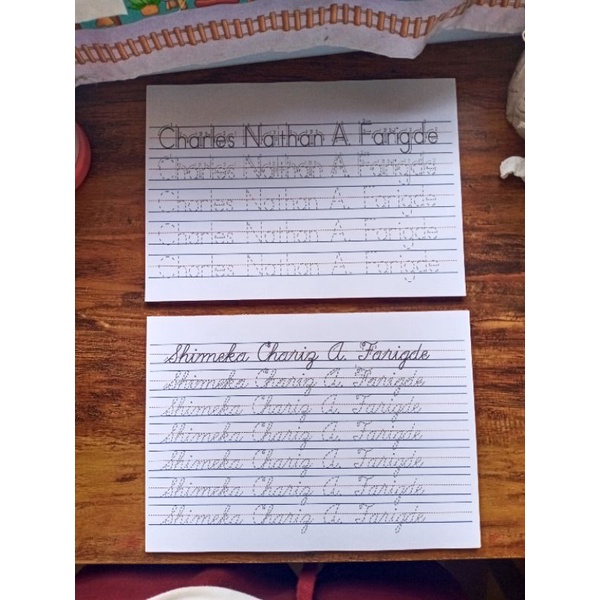 Charles Naithan A. Farigde
Charles Naithan A. Farigde
Charles Nathan A. Farigde
Charles Nathan A. Farigde
Charles Nathan A. Farigde
Shimeka Chariz A. Farigde
Shimeka Chariz A. Farigde
Shimeka Chariz A. Farigde
Shimeka Chariz A. Farigde
Shimeka Chariz A. Farigde
Shimeka Chariz A. Farigde
Shimeka Chariz A. Farigde